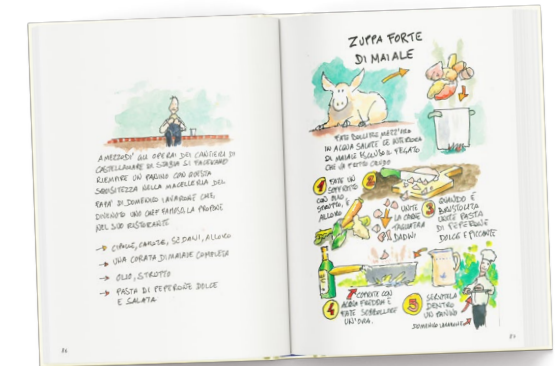 A MEZZODÌ GLI OPERAI DEI CANTIERI DI
CASTELLAMARE DI STABIA SI FACEVANO
RIEMPIRE UN PANINO CON QUESTA
SQUISITEZZA NELLA MACELLERIA DEL
PAPÀ DI DOMENICO IAVARONE CHE,
DIVENUTO UNO CHEF FAMOSO, LA PROPONE
NEL SUO RISTORANTE
→ CIPOLLE, CAROTE, SEDANI, ALLORO
→ UNA CORATA DI MAIALE COMPLETA
→ OLIO, STRUTTO
→ PASTA DI PEPERONE DOLCE
E SALATA
86
ZUPPA FORTE
DI MAIALE
FATE BOLLIRE MEZZ'ORA
IN ACQUA SALATA LE INTERIORA
DI MAIALE ESCLUSO IL FEGATO
CHE VA FATTO CRUDO
1 FATE UN
SOFFRITTO
CON OLIO,
STRUTTO, E
ALLORO
2
UNITE
LA CARNE
TAGLIATA A
DADINI
3 QUANDO È
BRUSTOLITA
UNITE PASTA
DI PEPERONE
DOLCE E PICCANTE
4
COPRITE CON
ACQUA FREDDA E
FATE SOBBOLLIRE
UN'ORA.
5 SERVITELA
DENTRO
UN PANINO
DOMENICO IAVARONE